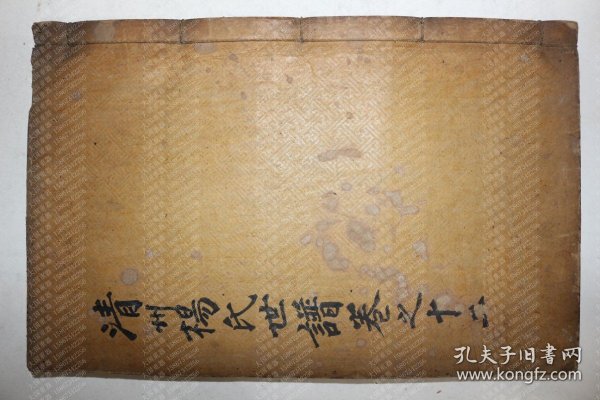 清州楊氏世譜卷之十二
孔夫子旧书网
www.kongfz.com